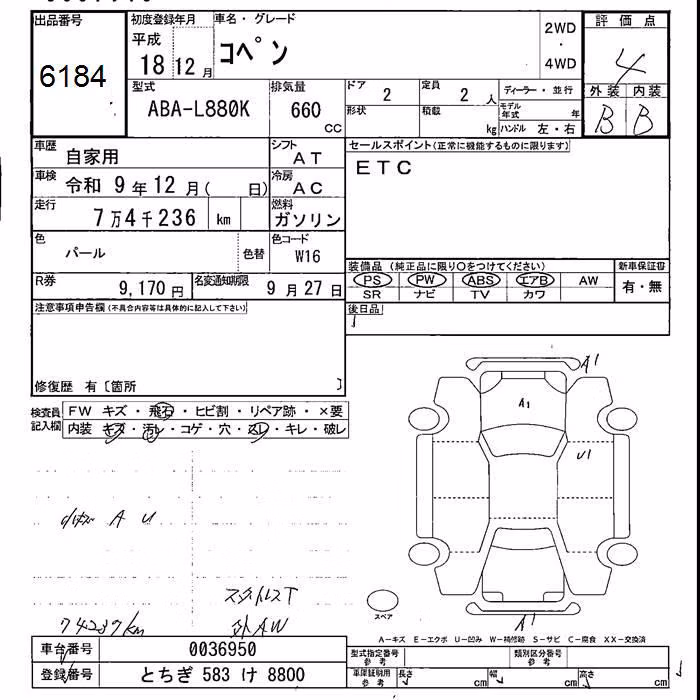 出品番号 初度登録年月 車名・グレード 2WD ・ 4WD 評価点
6184 平成 18 12月 コペン 4
外装 内装
B B
型式 排気量 ドア 2 定員 2 人 ディーラー・並行
ABA-L880K 660 CC 形状 積載 kg モデル年式 年
ハンドル 左・右
車歴 自家用 シフト AT セールスポイント(正常に機能するものに限ります)
車検 令和 9年 12月( 日) 冷房 AC ETC
走行 7万4千236 km 燃料 ガソリン
色 パール 色替 色コード W16
装備品 (純正品に限り○をつけてください) 新車保証書
R券 9,170円 名変通知期限 9月27日 PS PW ABS エアB AW 有・無
SR ナビ TV カワ
注意事項申告欄(不具合内容等は具体的に記入して下さい) 後日品
修復歴 有〔箇所 〕
検査員記入欄 FW キズ・飛石・ヒビ割・リペア跡・×要
内装 キズ・汚レ・コゲ・穴・スレ・キレ・破レ
A1
A1
U1
A U
スタットレスT
外AW
74237km
スペア
A1
A-キズ E-エクボ U-凹み W-補修跡 S-サビ C-腐食 XX-交換済
車台番号 0036950 型式指定番号 参考 類別区分番号 参考
登録番号 とちぎ 583 け 8800 車庫証明用 参考 長さ cm 幅 cm 高さ cm